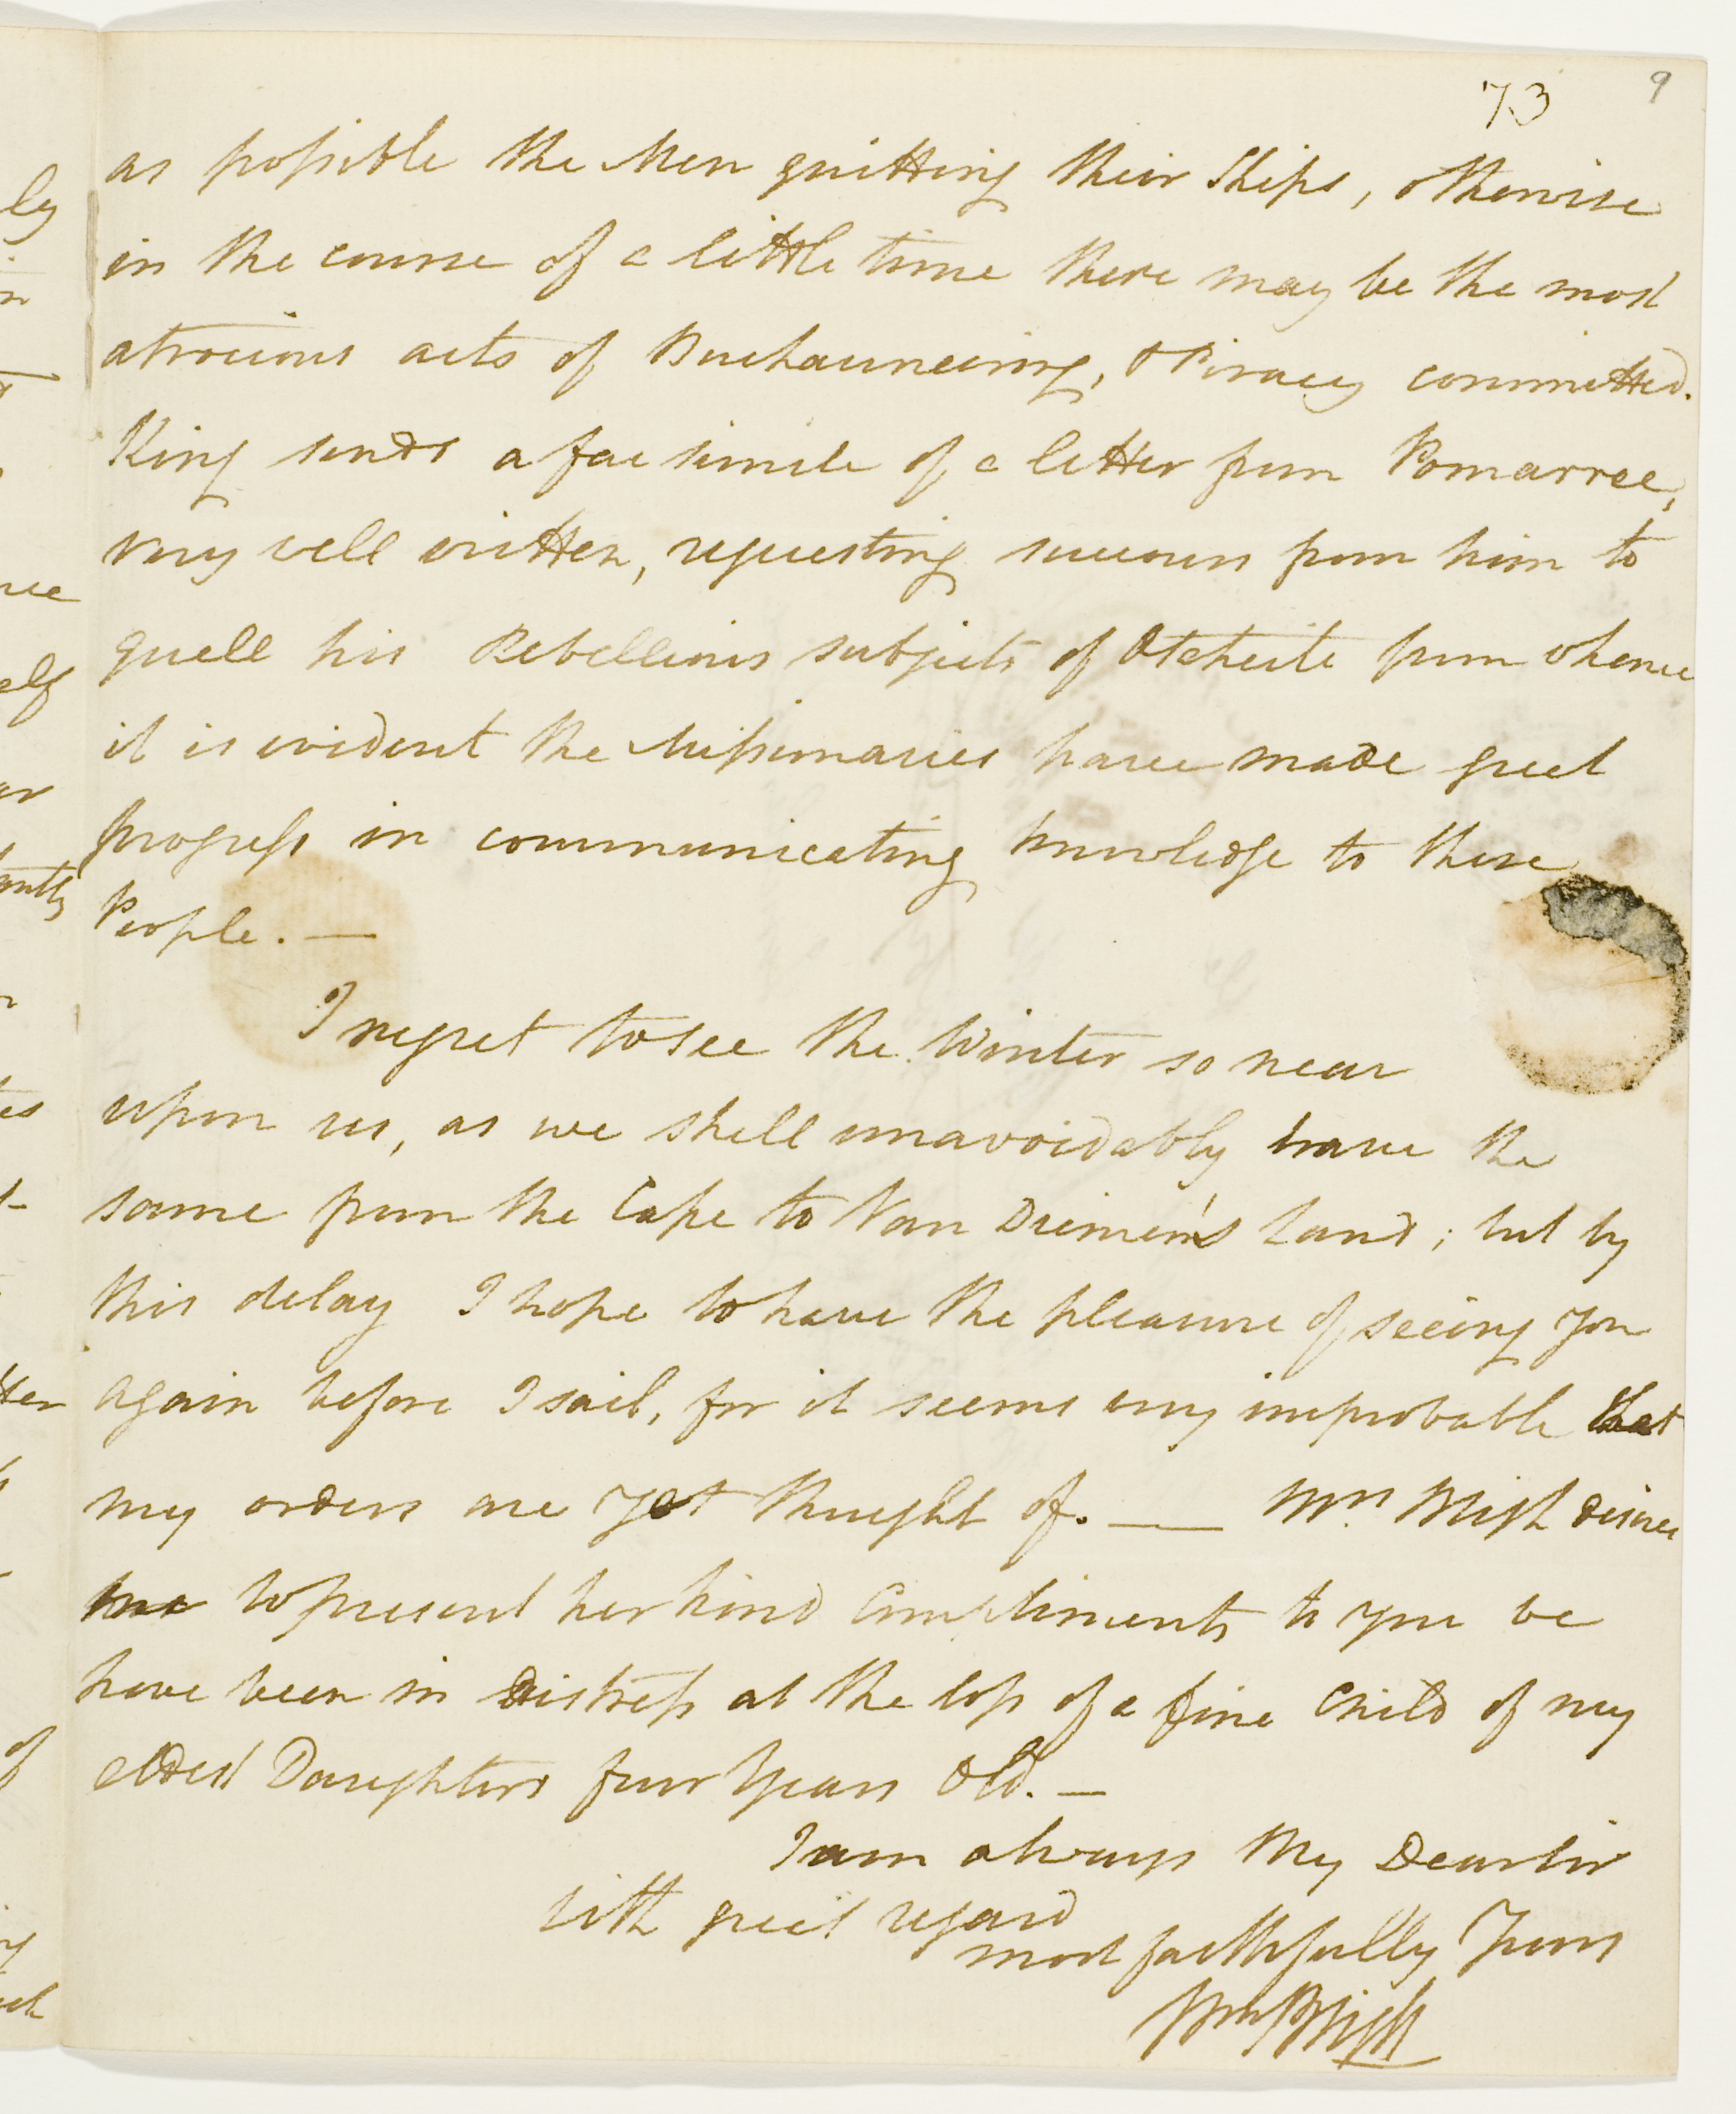 73
9
as possible the Men quitting their Ships, otherwise
in the course of a little time there may be the most
atrocious acts of Buchauneering, & Piracy committed.
King sends a fac simile of a letter from Pomarree,
very well written, requesting succours from him to
quell his Rebellious subjects of Otaheite from whence
it is evident the Missionaries have made great
progress in communicating knowledge to these
People. —
I regret to see the Winter so near
upon us, as we shall unavoidably have the
same from the Cape to Van Diemen's Land; but by
this delay I hope to have the pleasure of seeing you
again before I sail, for it seems very improbable that
my orders are yet thought of. — Mrs. Bligh desires
me to present her kind Compliments to you we
have been in distress at the loss of a fine Child of my
eldest Daughters four Years Old. —
I am always My Dear Sir
with great regard
most faithfully Yours
Wm Bligh
ly
n
nce
elf
ar
antly
es
tter
of